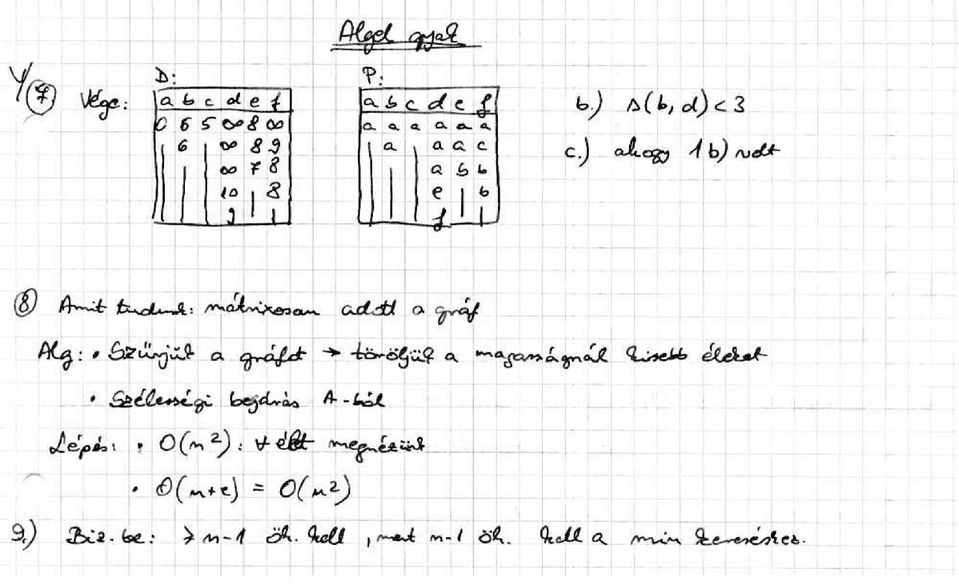 Algel gyak
7 Vége: D: P: b.) s(b, d) < 3
a b c d e f a b c d e f
0 6 5 ∞ 8 ∞ a a a a a a c.) ahogy 1b) volt
6 ∞ 8 9 a a a c
∞ 7 8 a b b
10 8 e b
9 f
8 Amit tudunk: mátrixosan adott a gráf
Alg: • Szűrjük a gráfot → töröljük a magasságnál kisebb éleket
• Szélességi bejárás A-ból
Lépés: • O(n²): ∀ élt megnézünk
• O(n+e) = O(n²)
9.) Biz. be: ≥ n-1 öh. kell, mert n-1 öh. kell a min kereséshez.